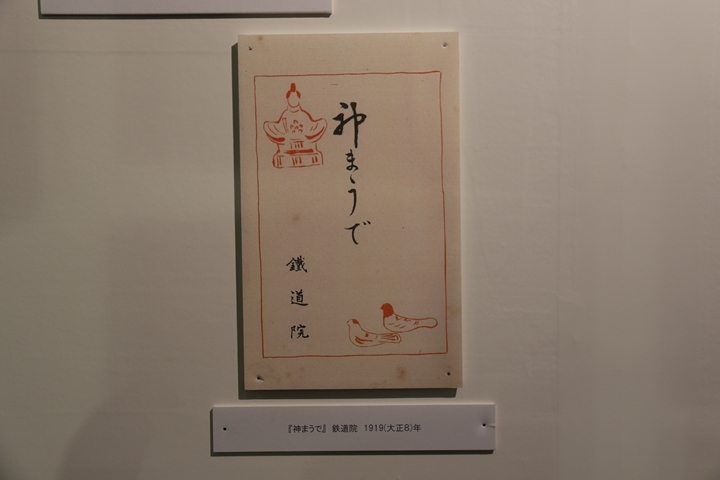 神まうで
鐵道院
『神まうで』 鉄道院 1919(大正8)年